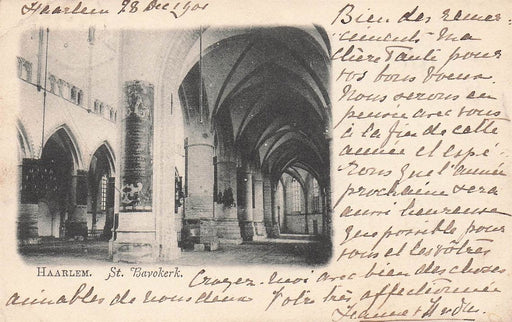 Haarlem 28 Dec 1901
Bien des remer-
ciements ma
chère Tante pour
vos bons voeux.
Nous serons en
pensée avec vous
à la fin de cette
année et espé-
rons que l'année
prochaine sera
aussi heureuse
que possible pour
vous et les vôtres
HAARLEM. St. Bavokerk.
Croyez-moi avec bien des choses
aimables de nous deux Votre très affectionnée
Jeanne